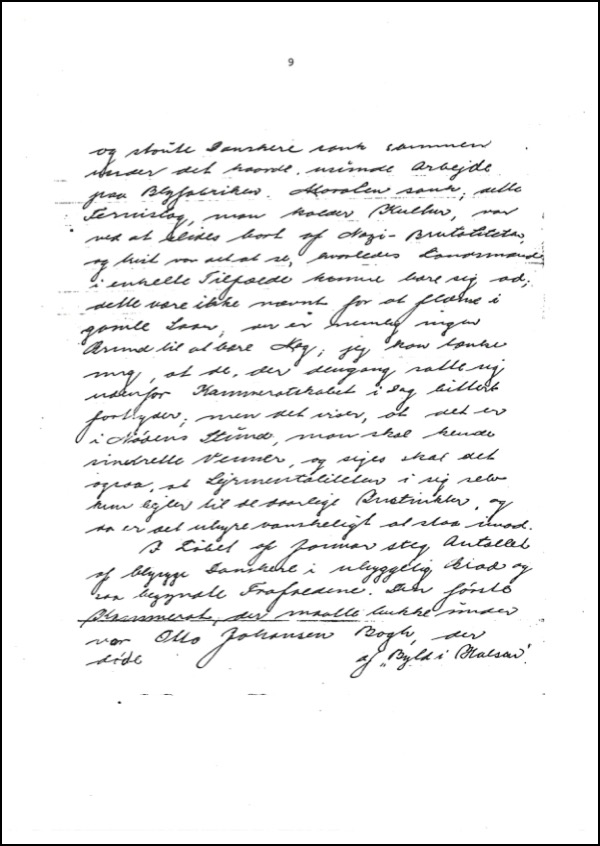 9
og stoute Danskere sank sammen
under det haarde, usunde Arbejde
paa Blyfabriken. Moralen sank; dette
Fernislag, man kalder Kultur, var
ved at slides bort af Nazi-Brutaliteten,
og trist var det at se, hvorledes Landsmænd
i enkelte Tilfælde kunne bære sig ad;
dette være ikke nævnt for at flænse i
gamle Saar, der er nemlig ingen
Grund til at bære Nag; jeg kan tænke
mig, at de, der dengang satte sig
udenfor Kammeratskabet i Dag bittert
fortryder; men det viser, at det er
i Nødens Stund, man skal kende
sine Venner, og siges skal det
ogsaa, at Lejrmentaliteten i sig selv
kun bejler til de daarlige Instinkter, og
saa er det uhyre vanskeligt at staa imod.
I Løbet af Januar steg Antallet
af blysyge Danskere i uhyggelig Grad og
saa begyndte Frafaldene. Den første
Kammerat, der maatte bukke under
var Otto Johansen Bogh, der
døde af "Byld i Halsen".